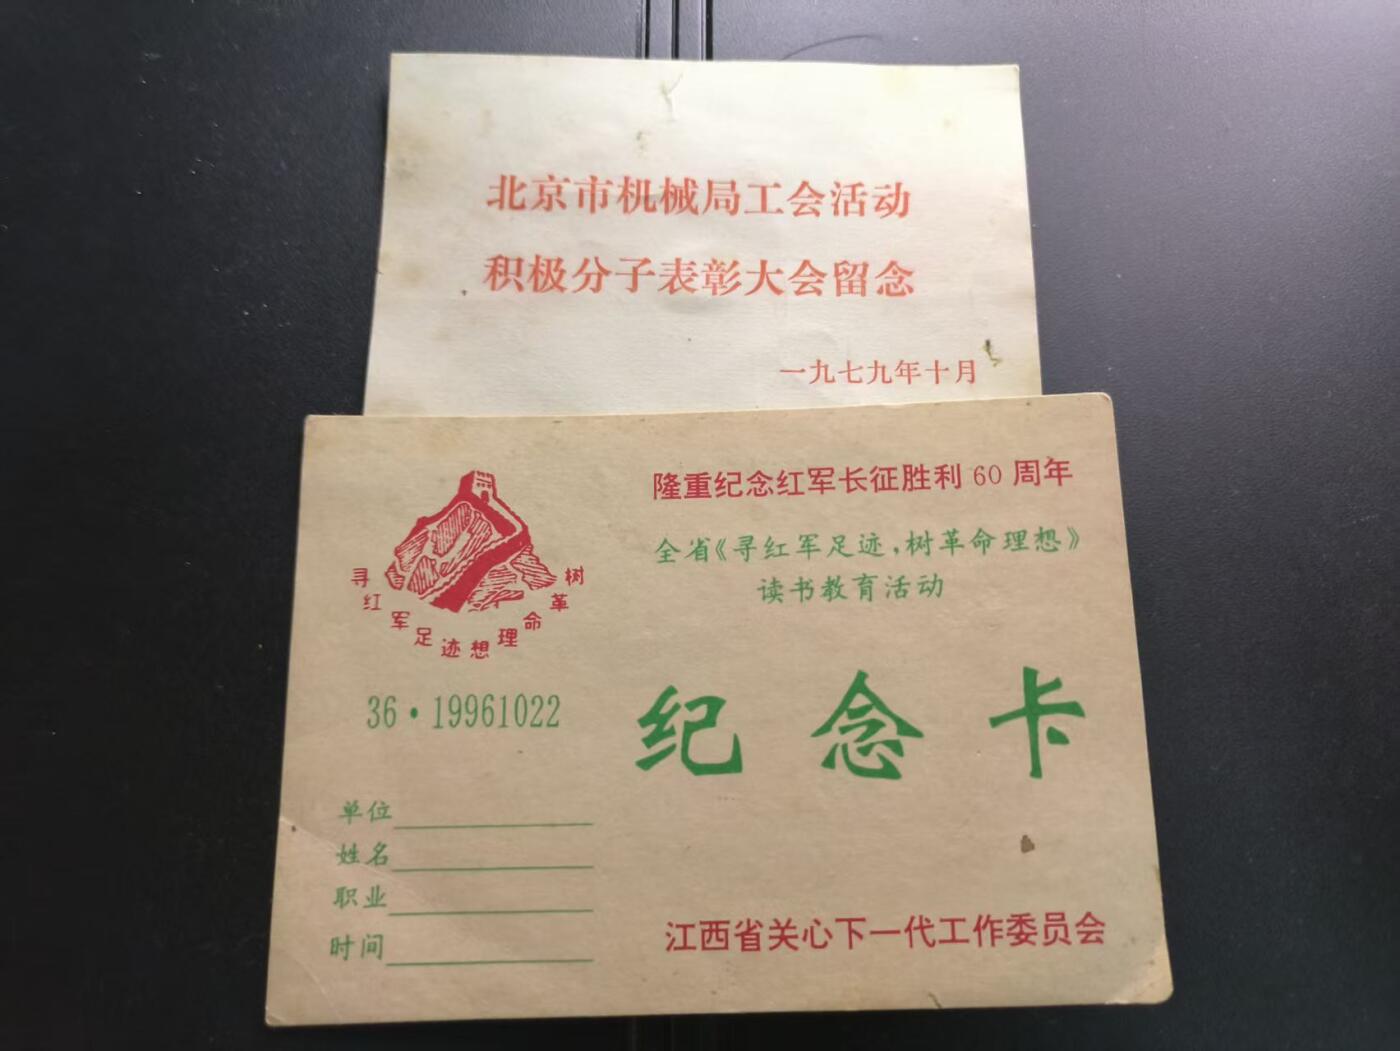 北京市机械局工会活动
积极分子表彰大会留念
一九七九年十月
隆重纪念红军长征胜利60周年
全省《寻红军足迹，树革命理想》
读书教育活动
寻红军足迹 树革命理想
36·19961022
纪念卡
单位
姓名
职业
时间
江西省关心下一代工作委员会